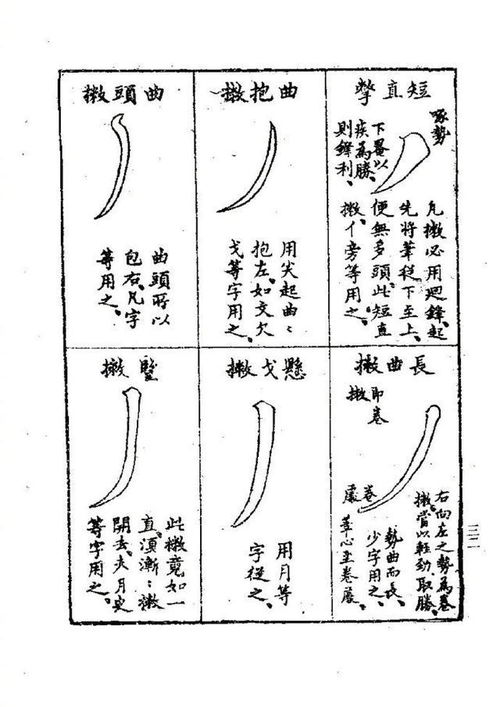 短直撆
啄勢
下罨以
疾為勝、
則鋒利、
凡撇必用廻鋒、起
先将筆從下至上、
便無多頭、此短直
撇、亻旁等用之、
曲抱撇
用尖起曲：
抱左、如文欠
戈等字用之、
曲頭撇
曲頭所以
包右、凡字
等用之、
長曲撇
即卷
撇
右向左之勢為卷
撇、當以輕勁取勝、
勢曲而長、
少字用之、
卷處
筆心至卷處、
懸戈撇
用月等
字從之
竪撇
此撇竟如一
直、須漸：撇
開去、夫月史
等字用之、
三二